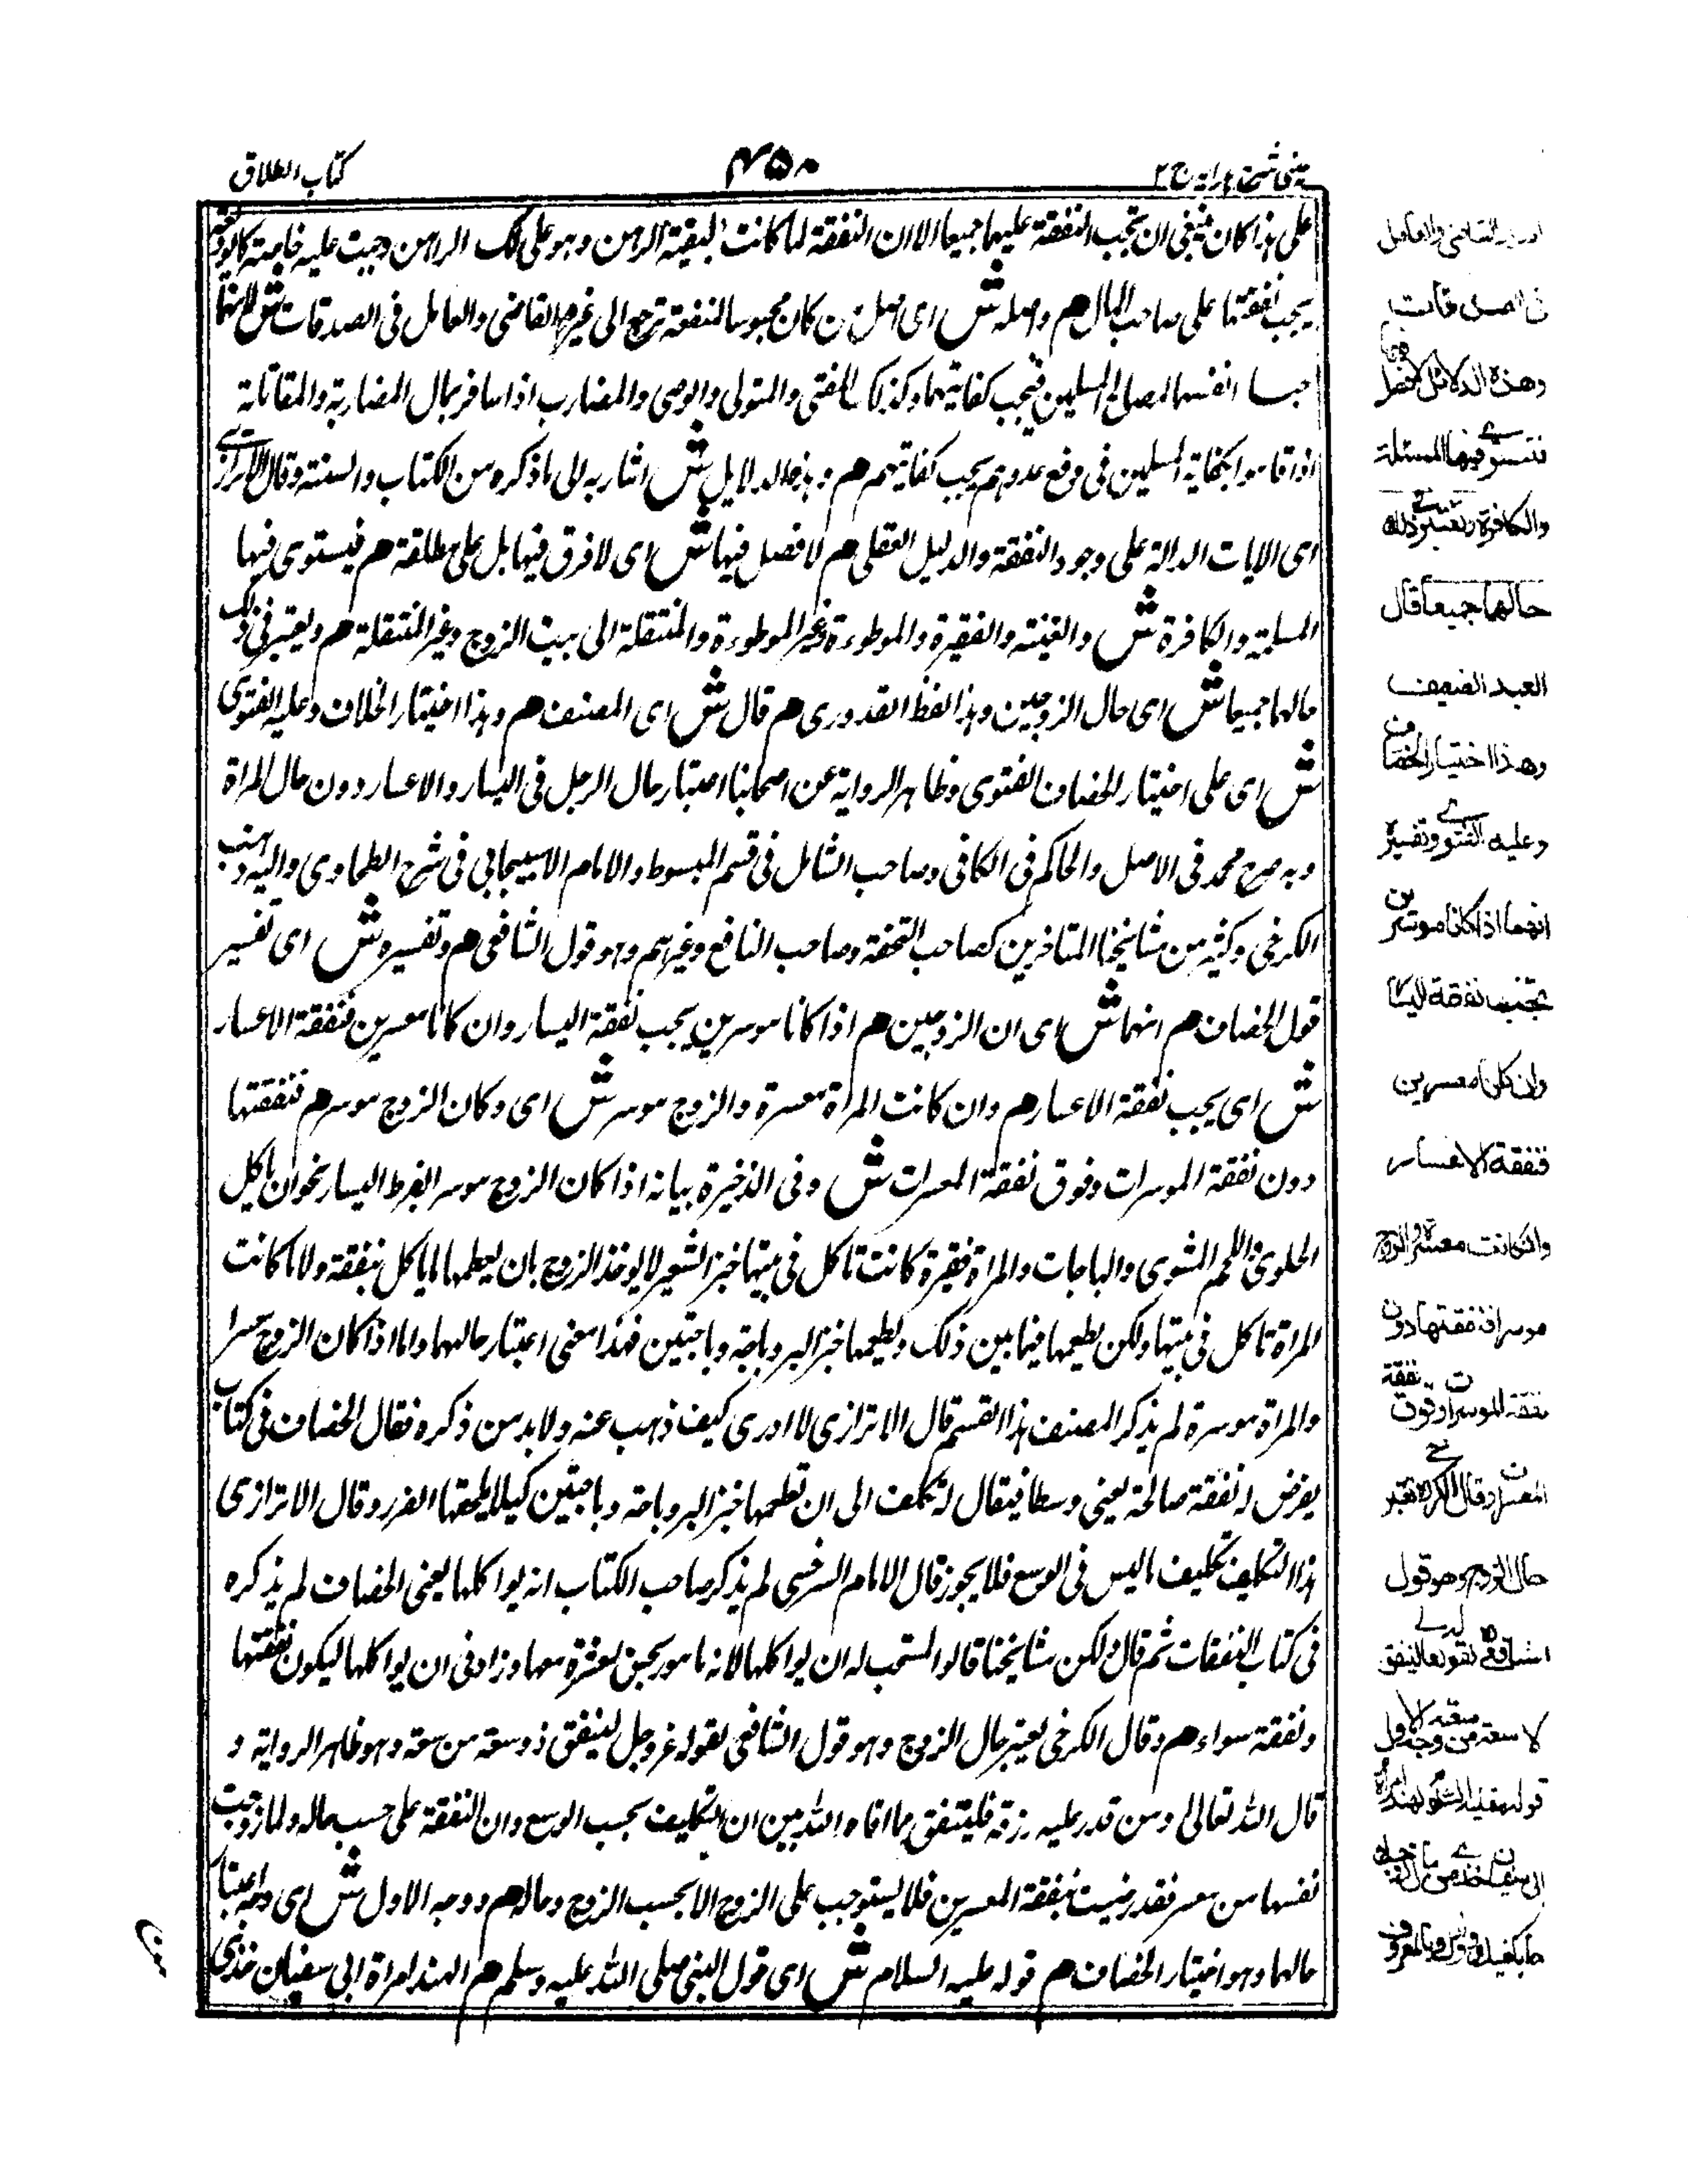 عینی شرح ہدایہ ج ۲
۴۵۰
کتاب الطلاق
علی ہذا کان ینبغی ان تجب النفقۃ علیہما جمیعا الا ان النفقۃ لما کانت لبقیۃ الرہن وہو علی ملک الراہن وجبت علیہ خاصۃ کالودیعۃ
یجب نفقتہا علی صاحب المال ہم واصلہ ش ای اصل من کان محبوسا لنفقۃ ترجع الی غیرہ القاضی والعامل فی الصدقات ش لانہما
احبسا انفسہما لمصالح المسلمین فیجب کفایتہما وکذلک المفتی والمتولی والوصی والمضارب اذا سافر بمال المضاربۃ والمقاتلۃ
اذا قاموا بکفایۃ المسلمین فی دفع عدوہم یجب کفایتہم ہم وہذہ الدلایل ش اشار بہ الی ما ذکرہ من الکتاب والسنۃ وقال الاترازی
ای الایات الدالۃ علی وجود النفقۃ والدلیل العقلی ہم لا فصل فیہا ش ای لا فرق فیہا بل علی مطلقۃ ہم فیستوی فیہا
المسلمۃ والکافرۃ ش والغنیۃ والفقیرۃ والموطوءۃ وغیر الموطوءۃ والمنتقلۃ الی بیت الزوج وغیر المنتقلۃ ہم ویعتبر فی ذلک
حالہما جمیعا ش ای حال الزوجین وہذا لفظ القدوری ہم قال ش ای المصنف ہم وہذا اختیار الخلاف وعلیہ الفتوی
ش ای علی اختیار الخصاف الفتوی وظاہر الروایۃ عن اصحابنا اعتبار حال الرجل فی الیسار والاعسار دون حال المراۃ
وبہ صرح محمد فی الاصل والحاکم فی الکافی وصاحب الشامل فی قسم المبسوط والامام الاسبیجابی فی شرح الطحاوی والیہ ذہب
الکرخی وکثیر من مشایخنا المتاخرین کصاحب التحفۃ وصاحب النافع وغیرہم وہو قول الشافعی ہم وتفسیرہ ش ای تفسیر
قول الخصاف ہم انہما ش ای ان الزوجین ہم اذا کانا موسرین یجب نفقۃ الیسار وان کانا معسرین فنفقۃ الاعسار
ش ای یجب نفقۃ الاعسار ہم وان کانت المراۃ معسرۃ والزوج موسر ش ای وکان الزوج موسر ہم فنفقتہا
دون نفقۃ الموسرات وفوق نفقۃ المعسرات ش وفی الذخیرۃ بیانہ اذا کان الزوج موسر الفرط الیسار نحو ان یاکل
الحلوی واللحم المشوی والباجات والمراۃ فقیرۃ کانت تاکل فی بیتہا خبز الشعیر لا یوخذ الزوج بان یطعمہا ما یاکل بنفقۃ ولا ما کانت
المراۃ تاکل فی بیتہا ولکن یطعمہا فیما بین ذلک ویطعمہا خبز البر وباجۃ وباجتین فہذا معنی اعتبار حالہما واما اذا کان الزوج معسرا
والمراۃ موسرۃ لم یذکر المصنف ہذا القسم قال الاترازی لا ادری کیف ذہب عنہ ولا بد من ذکرہ فقال الخصاف فی کتاب
یفرض لہ نفقۃ صالحۃ یعنی وسطا فیقال لہ تکلف الی ان تطعمہا خبز البر وباجۃ وباجتین کیلا یلحقہا الضرر وقال الاترازی
ہذا التکلیف تکلیف ما لیس فی الوسع فلا یجوز قال الامام السرخسی لم یذکر صاحب الکتاب انہ یواکلہا یعنی الخصاف لم یذکرہ
فی کتاب النفقات ثم قال ولکن مشایخنا قالوا المستحب لہ ان یواکلہا لانہ مامور بحسن العشرۃ معہا وزاد فی ان یواکلہا لیکون نفقتہا
ونفقۃ سواء ہم وقال الکرخی یعتبر حال الزوج وہو قول الشافعی لقولہ عز وجل لینفق ذو سعۃ من سعۃ وہو ظاہر الروایۃ و
قال اللہ تعالی ومن قدر علیہ رزقہ فلینفق مما اتاہ اللہ بین ان التکلیف بحسب الوسع وان النفقۃ علی حسب حالہ ولما زوجت
نفسہا من معسر فقد رضیت بنفقۃ المعسرین فلا یستوجب علی الزوج الا بحسب الزوج وحالہ ہم ووجہ الاول ش ای وجہ اعتبار
حالہما وہو اختیار الخصاف ہم قولہ علیہ السلام ش ای قول النبی صلی اللہ علیہ وسلم ہم الہند امراۃ ابی سفیان خذی
القاضی والعامل
فی الصدقات
وهذه الدلائل لا فصل فیها
فتستوی فیها المسلمة
والکافرة ویعتبر فی ذلك
حالهما جمیعا قال
العبد الضعیف
وهذا اختیار الخصاف
وعلیه الفتوی وتفسیره
انهما اذا کانا موسرین
تجب نفقة الیسار
وان کانا معسرین
فنفقة الاعسار
وان کانت معسرة والزوج
موسرا فنفقتها دون
نفقة الموسرات وفوق نفقة
المعسرات وقال الکرخی یعتبر
حال الزوج وهو قول
الشافعی لقوله تعالی لینفق
ذو سعة من سعته وجه الاول
قوله علیه السلام لهند امرأة
ابی سفیان خذی من مال زوجك
ما یکفیك وولدك بالمعروف